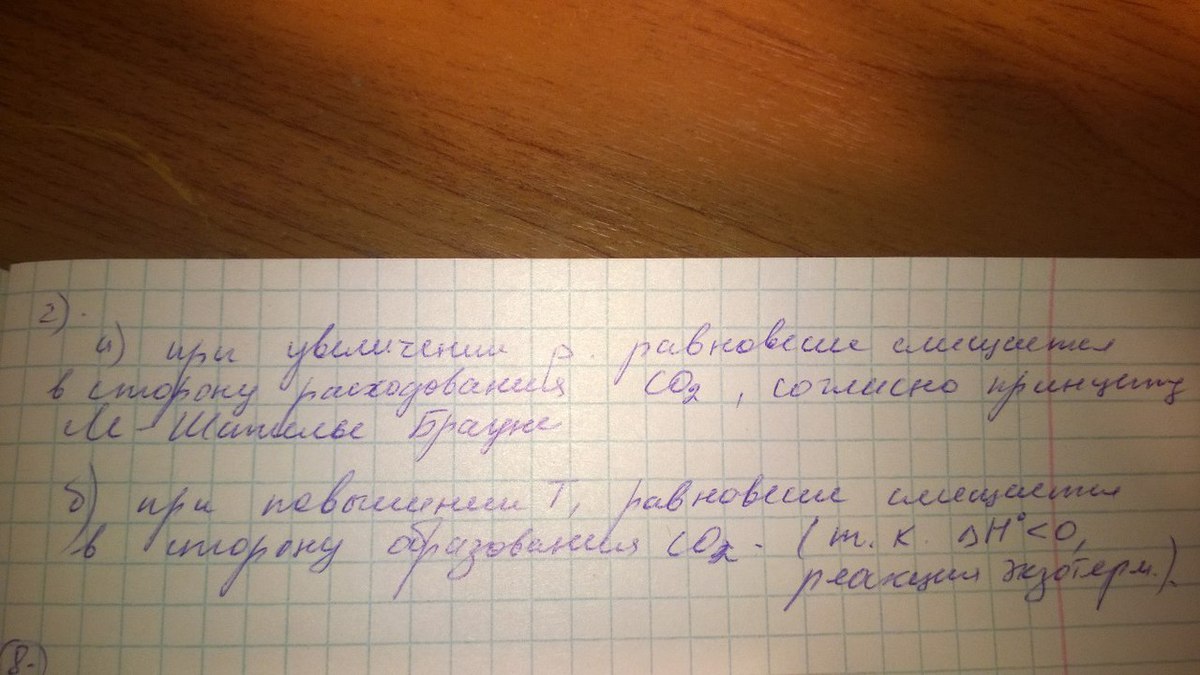 2).
а) при увеличении p. равновесие смещается
в сторону расходования CO₂, согласно принципу
Ле-Шателье Брауна
б) при повышении T, равновесие смещается
в сторону образования CO₂. (т. к. ΔH°<0,
реакция экзотерм.).
8.